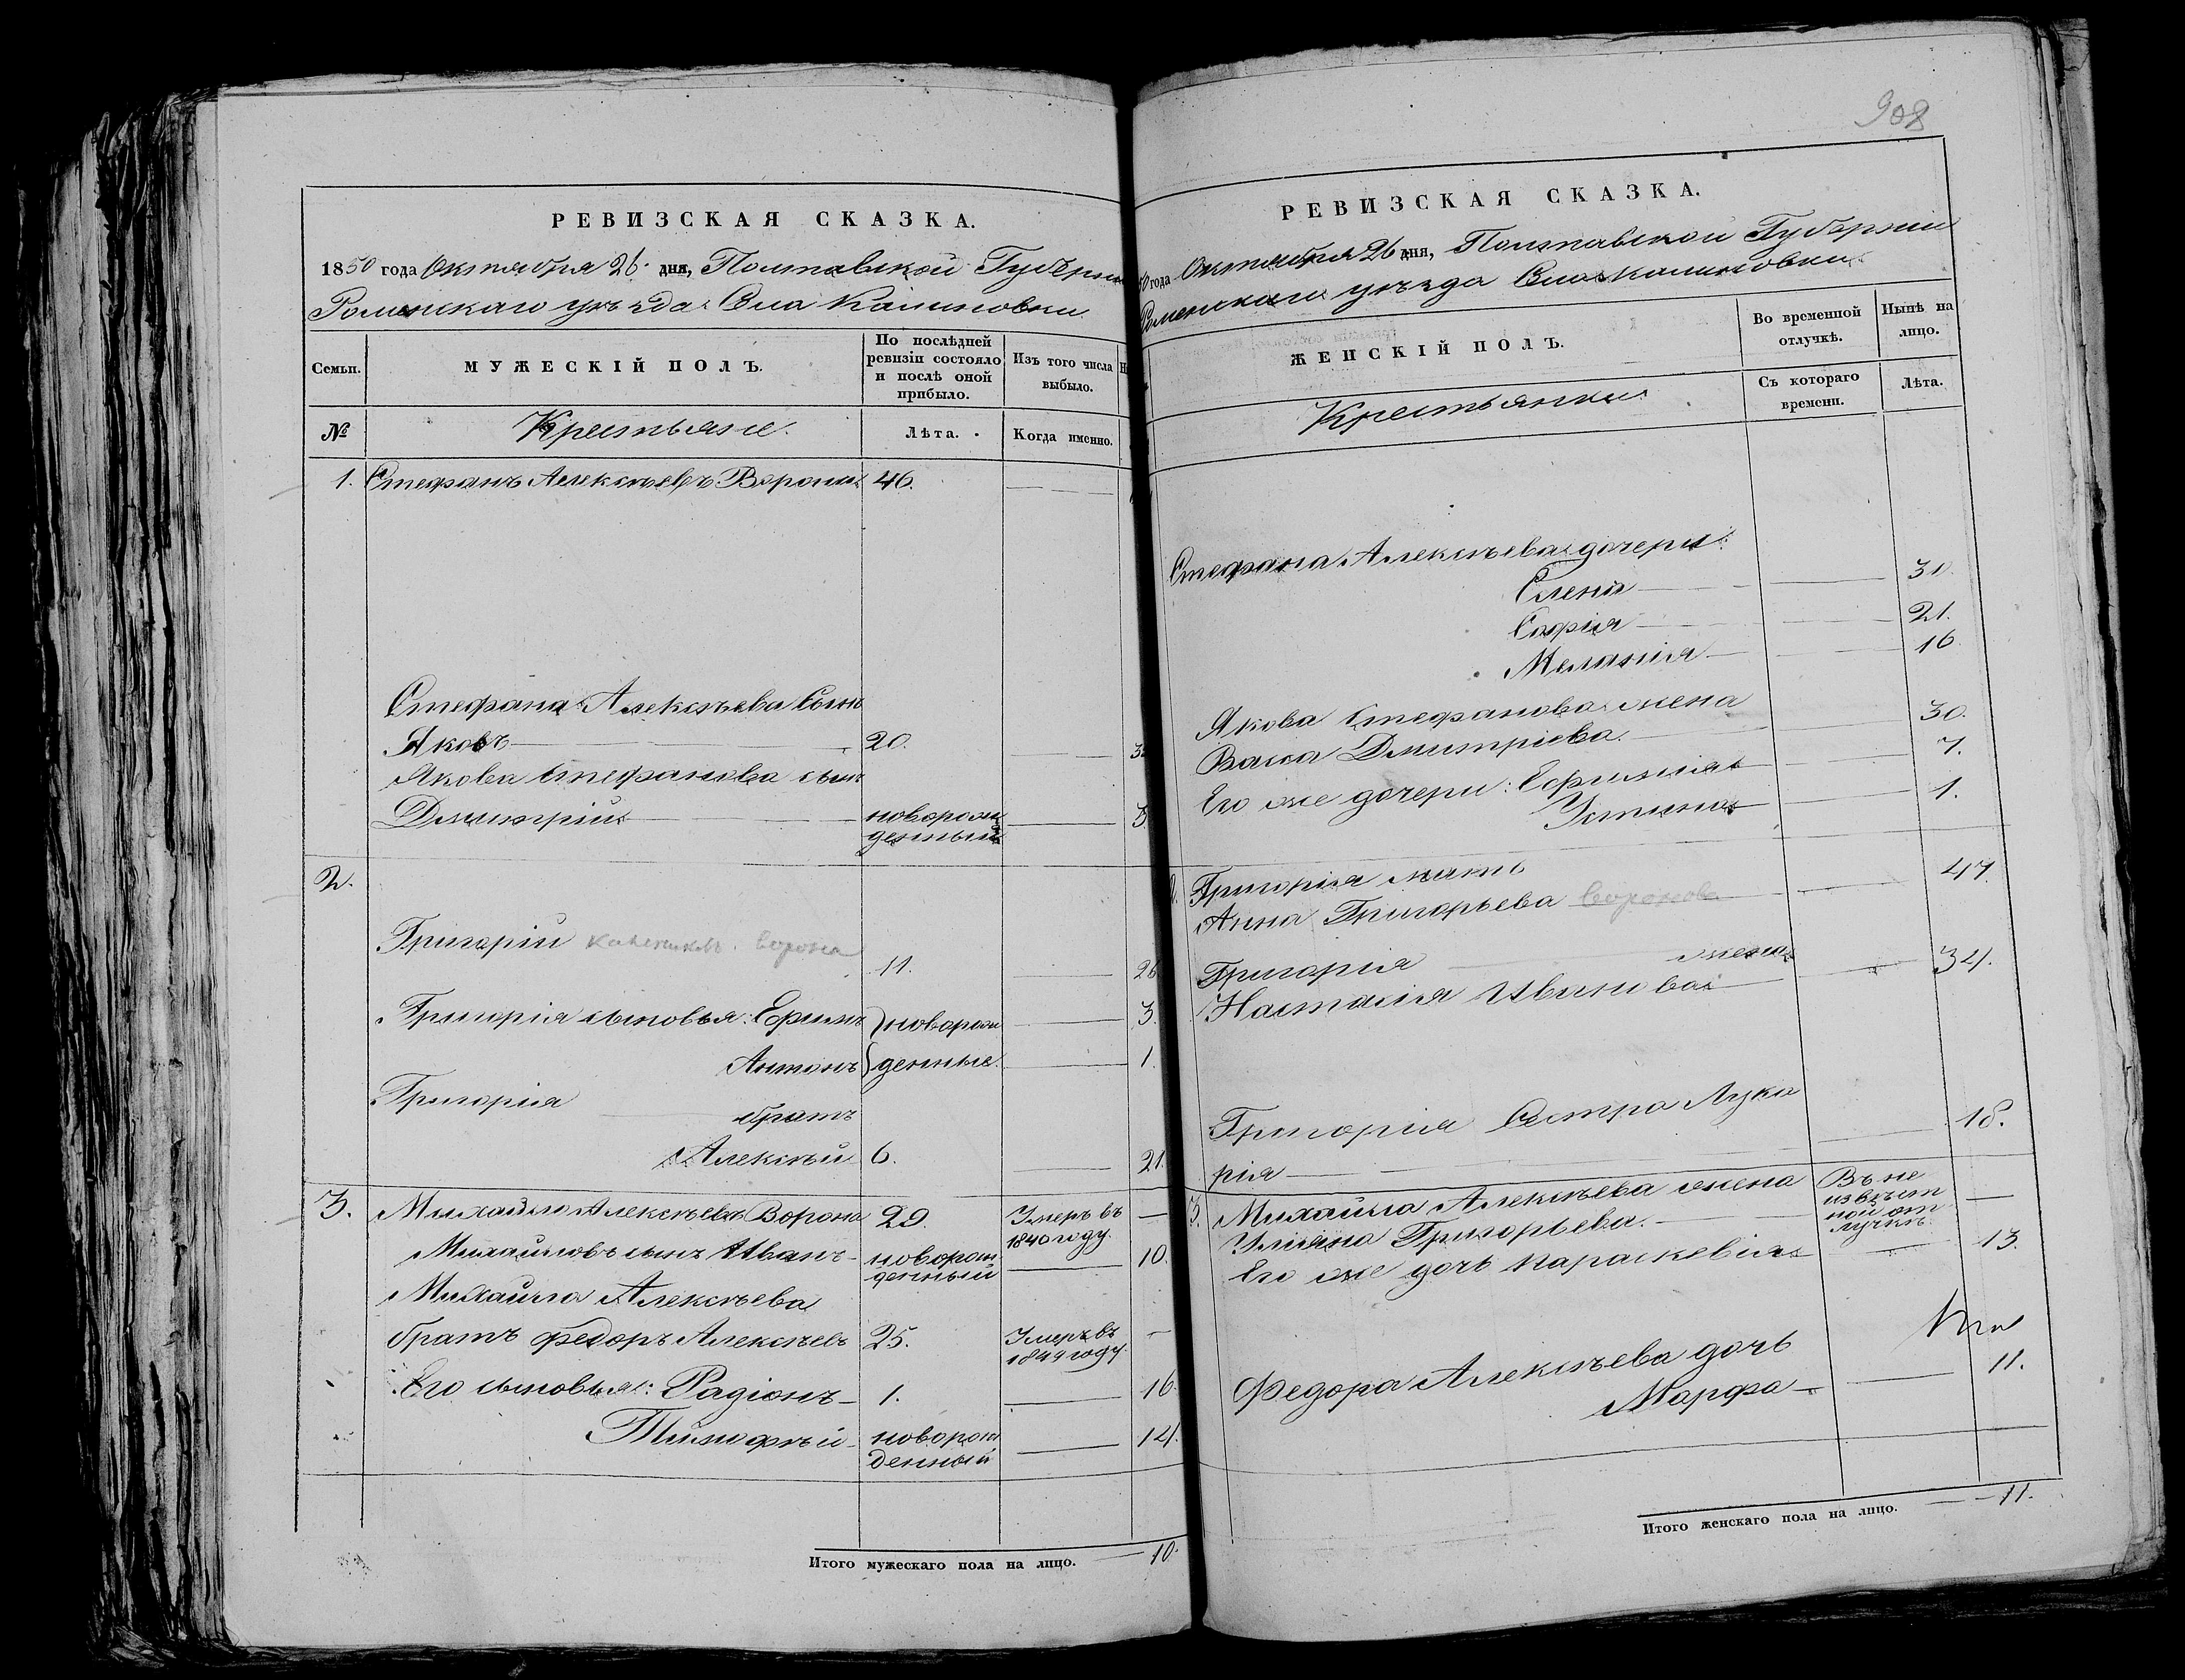 908
РЕВИЗСКАЯ СКАЗКА.
1850 года Октября 26 дня, Полтавской Губерн
Роменскаго уѣзда Села Калиновки
Семьи.
МУЖЕСКІЙ ПОЛЪ.
По послѣдней ревизіи состояло и послѣ оной прибыло.
Изъ того числа выбыло.
№
Крестьяне.
Лѣта.
Когда именно.
1. Стефанъ Алексѣевъ Ворона 46.
Стефана Алексѣева сынъ
Яковъ 20.
Якова Стефанова сынъ
Дмитрій новорож
денный 3
2.
Григорій Ворона
11. 26
Григорія сыновья: Ефимъ новорож 3.
Антонъ денные. 1.
Григорія
братъ
Алексѣй 6. 21.
3. Михайло Алексѣевъ Ворона 29. Умеръ въ 1840 году.
Михайловъ сынъ Иванъ новорож
денный 10.
Михайла Алексѣева
братъ Федоръ Алексѣевъ 25. Умеръ въ
году.
Его сыновья: Радіонъ 1. 16
Тимофѣй новорож
денный 14.
Итого мужескаго пола на лицо. 10.
РЕВИЗСКАЯ СКАЗКА.
0 года Октября 26 дня, Полтавской Губерніи
Роменскаго уѣзда Села Калиновки
ЖЕНСКІЙ ПОЛЪ.
Во временной отлучкѣ.
Нынѣ на лицо.
Крестьянки
Съ котораго времени.
Лѣта.
Стефана Алексѣева дочери:
Елена 31.
Софія 21.
Меланія 16.
Якова Стефанова жена
Васса Дмитріева 30.
Его же дочери: Ефимія 7.
Устина 1.
Григорія мать
Анна Григорьева Воронова 47.
Григорія жена
Настасія Иванова 34.
Григорія Сестра Лука
рія 18.
3. Михайла Алексѣева жена Въ не
Уліяна Григорьева. извѣст
ной от
лучкѣ.
Его же дочь Параскевія 13.
Федора Алексѣева дочь
Марфа 11.
Итого женскаго пола на лицо. 11.